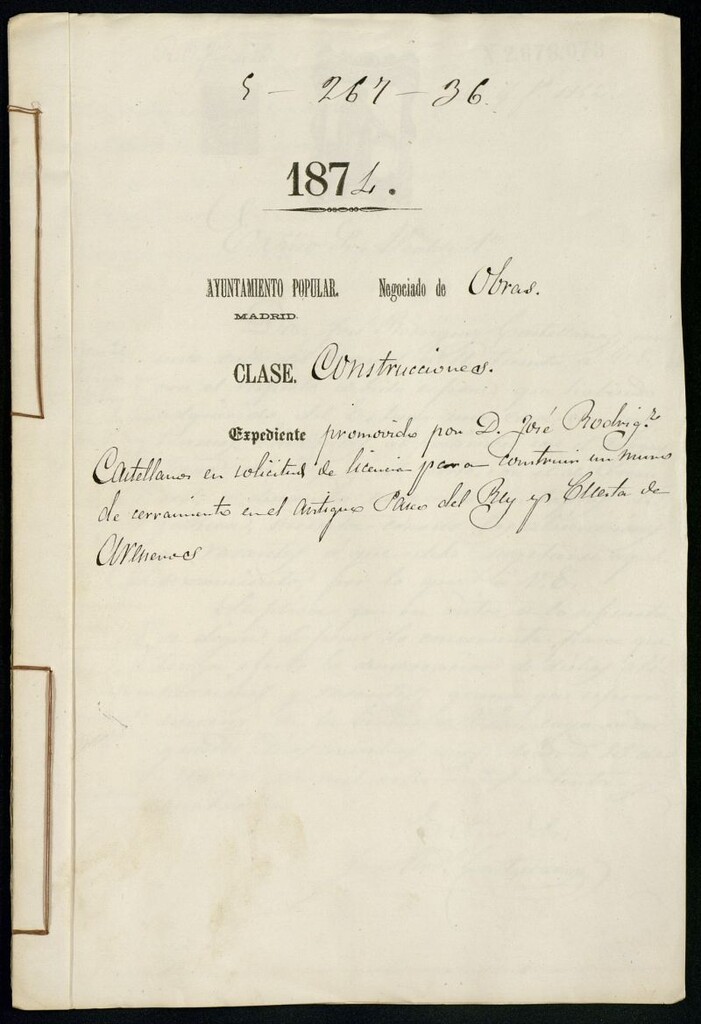 5 - 267 - 36.
1874.
AYUNTAMIENTO POPULAR. Negociado de Obras.
MADRID.
CLASE. Construcciones.
Expediente promovido por D. José Rodrig.z
Castellanos en solicitud de licencia para construir un muro
de cerramiento en el antiguo Paseo del Rey y Cuesta de
Areneros